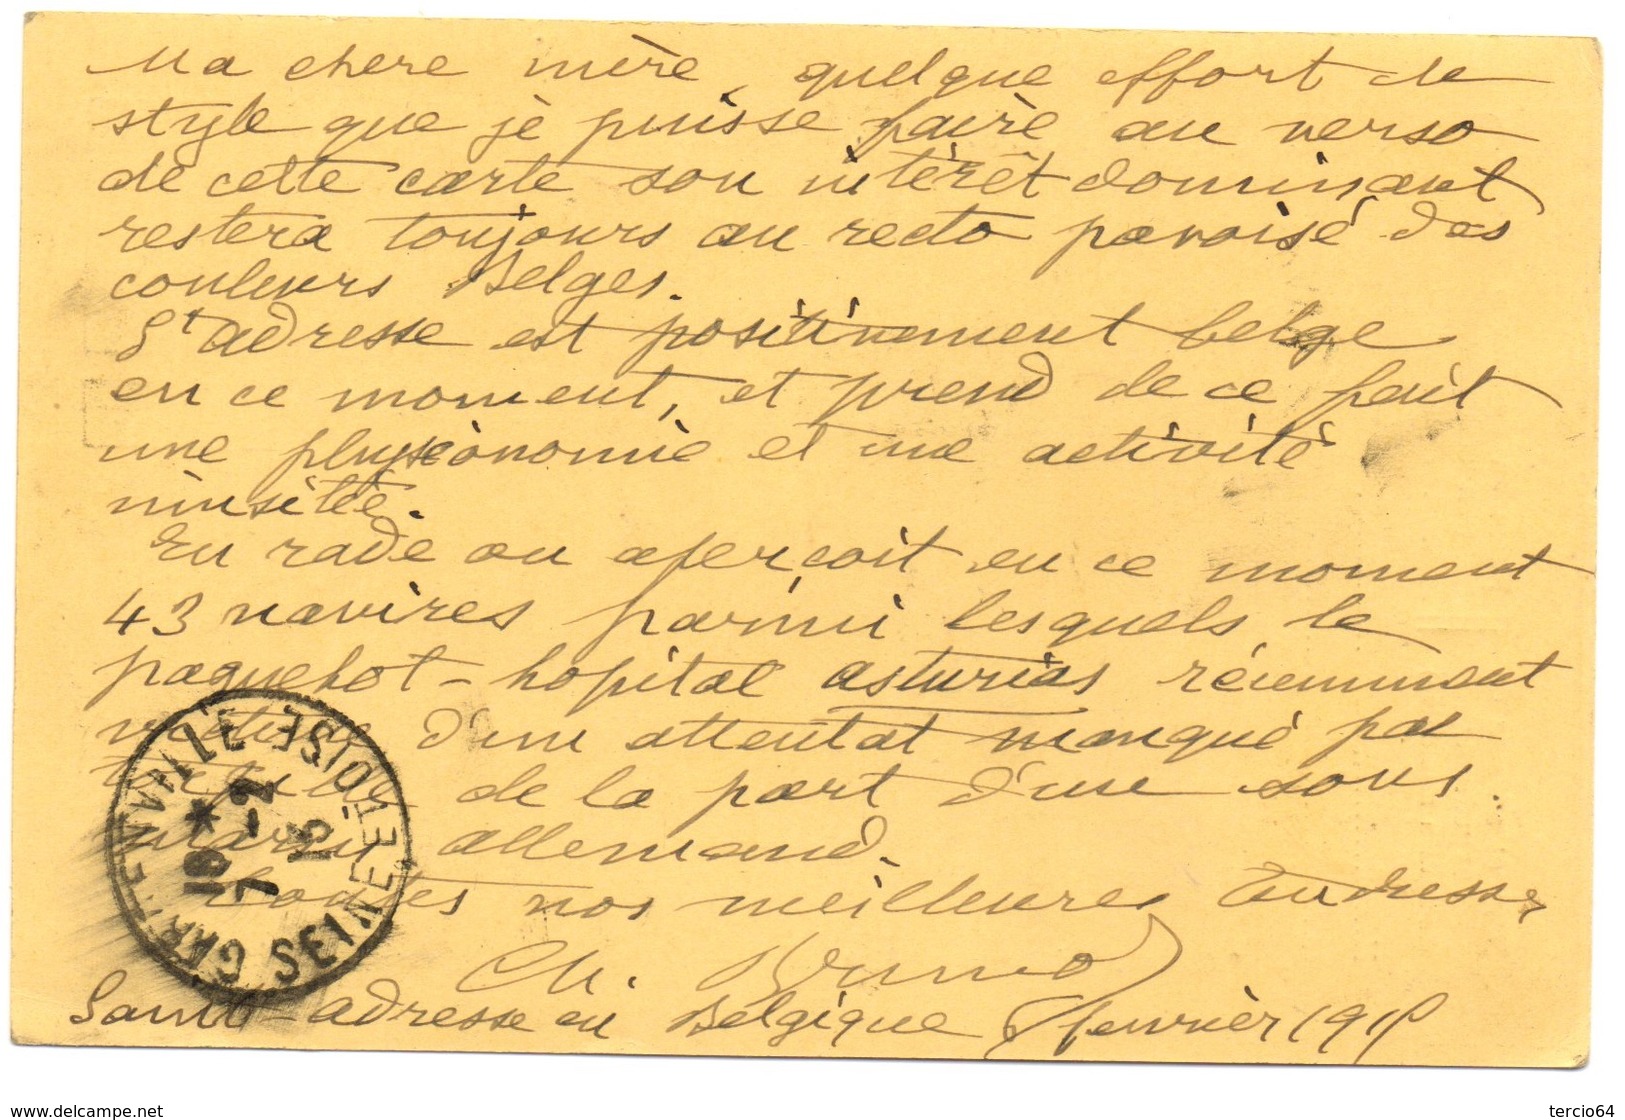 Ma chere mère, quelque effort de
style que je puisse faire au verso
de cette carte son intérêt dominant
restera toujours au recto pavoisé des
couleurs Belges.
St adresse est positivement belge
en ce moment, et prend de ce fait
une physionomie et une activité
inusitée.
En rade on aperçoit en ce moment
43 navires parmi lesquels le
paquebot-hopital asturias récemment
victime d'un attentat manqué par
torpille de la part d'une sous
marin allemand.
toutes nos meilleures tendresses
Ch. Bruno
Sainte-adresse en Belgique 8 fevrier 1915
GARGENVILLE SEINE ET OISE
16 * 7 -2 15
www.delcampe.net
tercio64